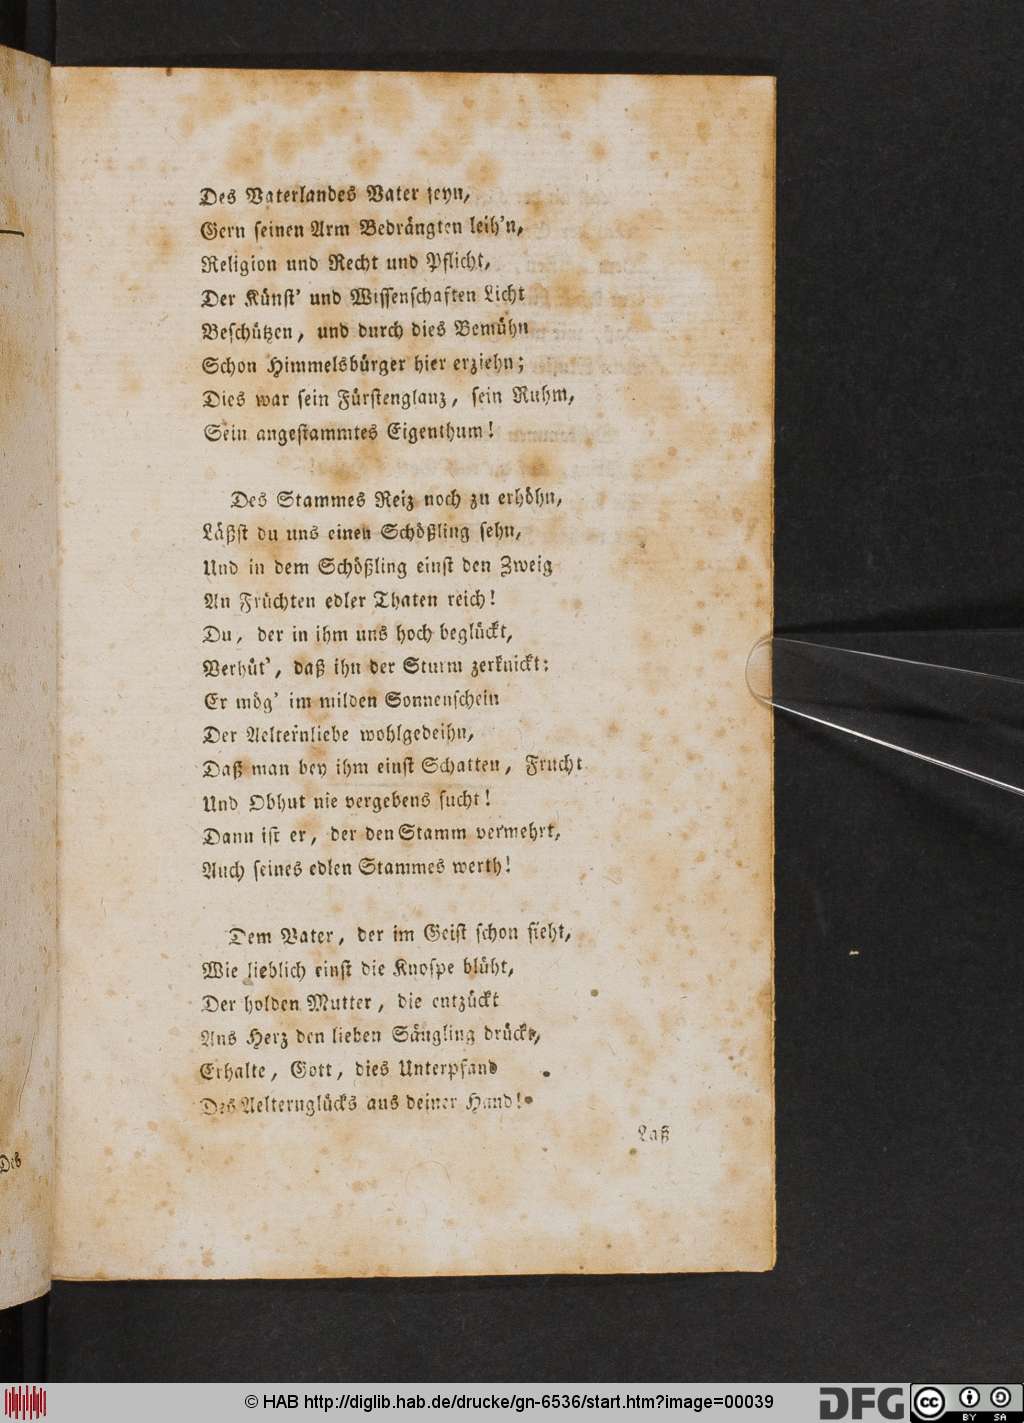 Des Vaterlandes Vater seyn,
Gern seinen Arm Bedrängten leih'n,
Religion und Recht und Pflicht,
Der Künst' und Wissenschaften Licht
Beschützen, und durch dies Bemühn
Schon Himmelsbürger hier erziehn;
Dies war sein Fürstenglanz, sein Ruhm,
Sein angestammtes Eigenthum!
Des Stammes Reiz noch zu erhöhn,
Läßst du uns einen Schößling sehn,
Und in dem Schößling einst den Zweig
An Früchten edler Thaten reich!
Du, der in ihm uns hoch beglückt,
Verhüt', daß ihn der Sturm zerknickt:
Er mög' im milden Sonnenschein
Der Aelternliebe wohlgedeihn,
Daß man bey ihm einst Schatten, Frucht
Und Obhut nie vergebens sucht!
Dann ist er, der den Stamm vermehrt,
Auch seines edlen Stammes werth!
Dem Vater, der im Geist schon sieht,
Wie lieblich einst die Knospe blüht,
Der holden Mutter, die entzückt
Ans Herz den lieben Säugling drückt,
Erhalte, Gott, dies Unterpfand
Des Aelternglücks aus deiner Hand!
Laß
Des
© HAB http://diglib.hab.de/drucke/gn-6536/start.htm?image=00039
DFG
cc
BY SA